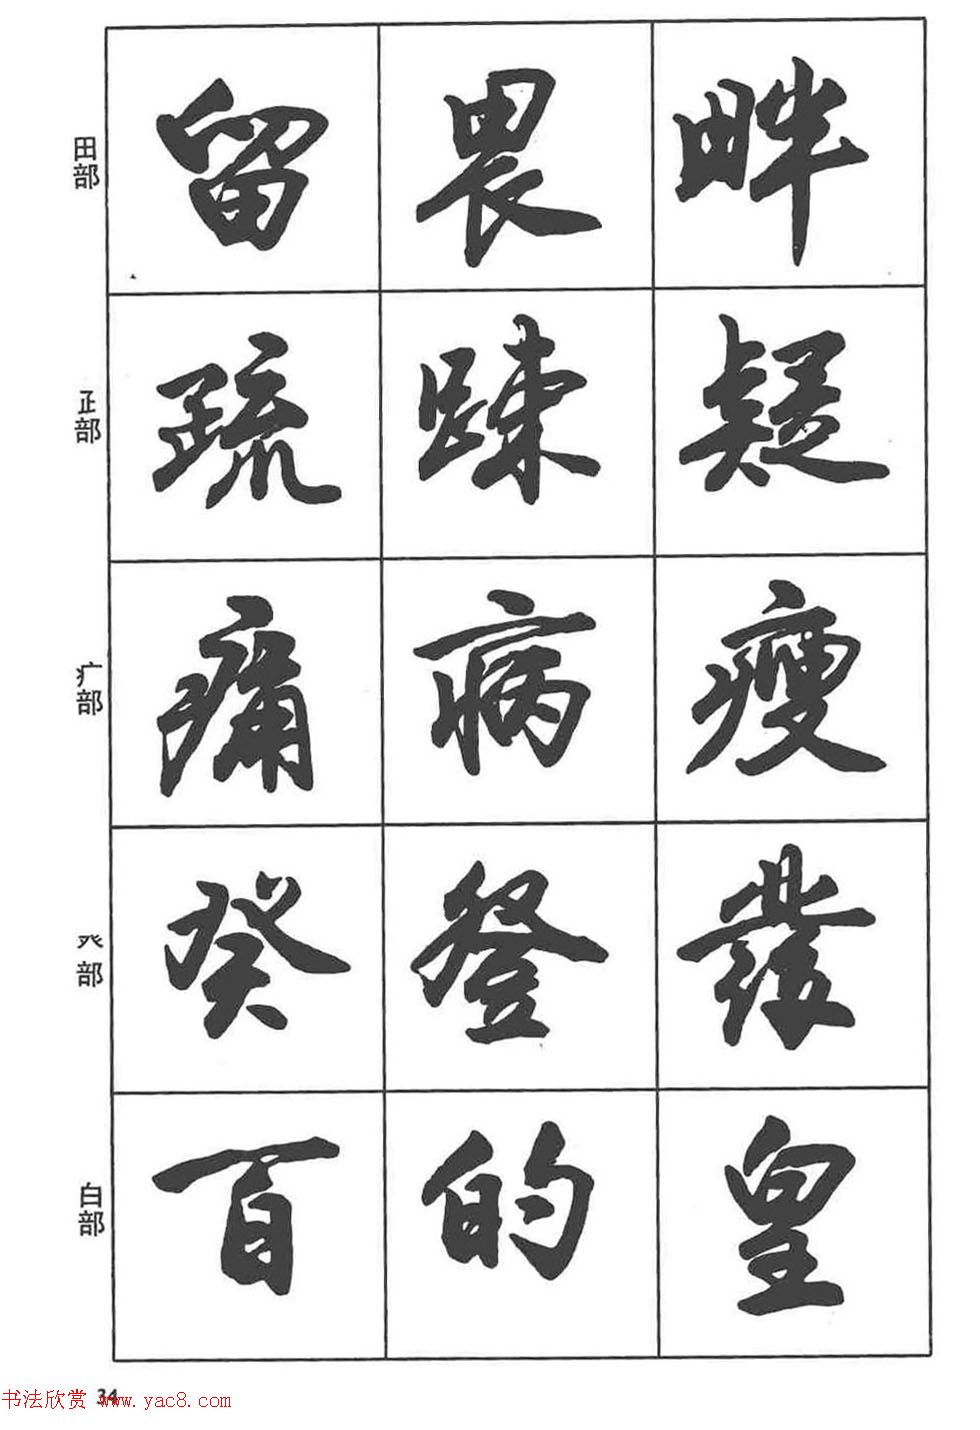 田部 留 畏 畔
疋部 疏 踈 疑
疒部 痛 病 瘦
癶部 癸 登 發
白部 百 的 皇
34
书法欣赏 www.yac8.com